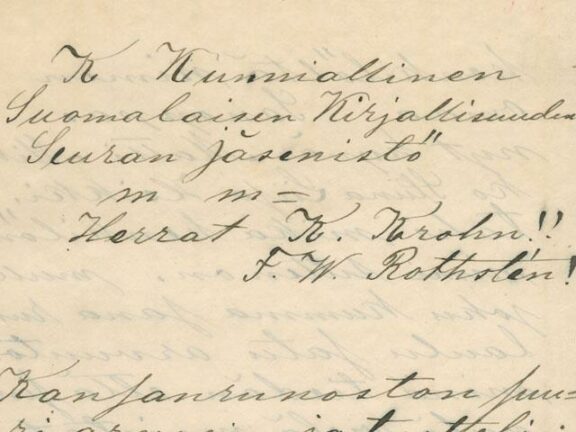 K Kunniallinen
Suomalaisen Kirjallisuuden
Seuran jäsenistö
m m =
Herrat K. Krohn!!
F. W. Rothstén!
Kanjanrunoston juu=
ri arvoisia